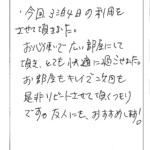 ・今回、3泊4日の利用を
させて頂きました。
お心使いで広い部屋にして
頂き、とても快適に過ごせました。
お部屋もキレイで次回も
是非リピートさせて頂くつもり
です。友人にも、おすすめします!